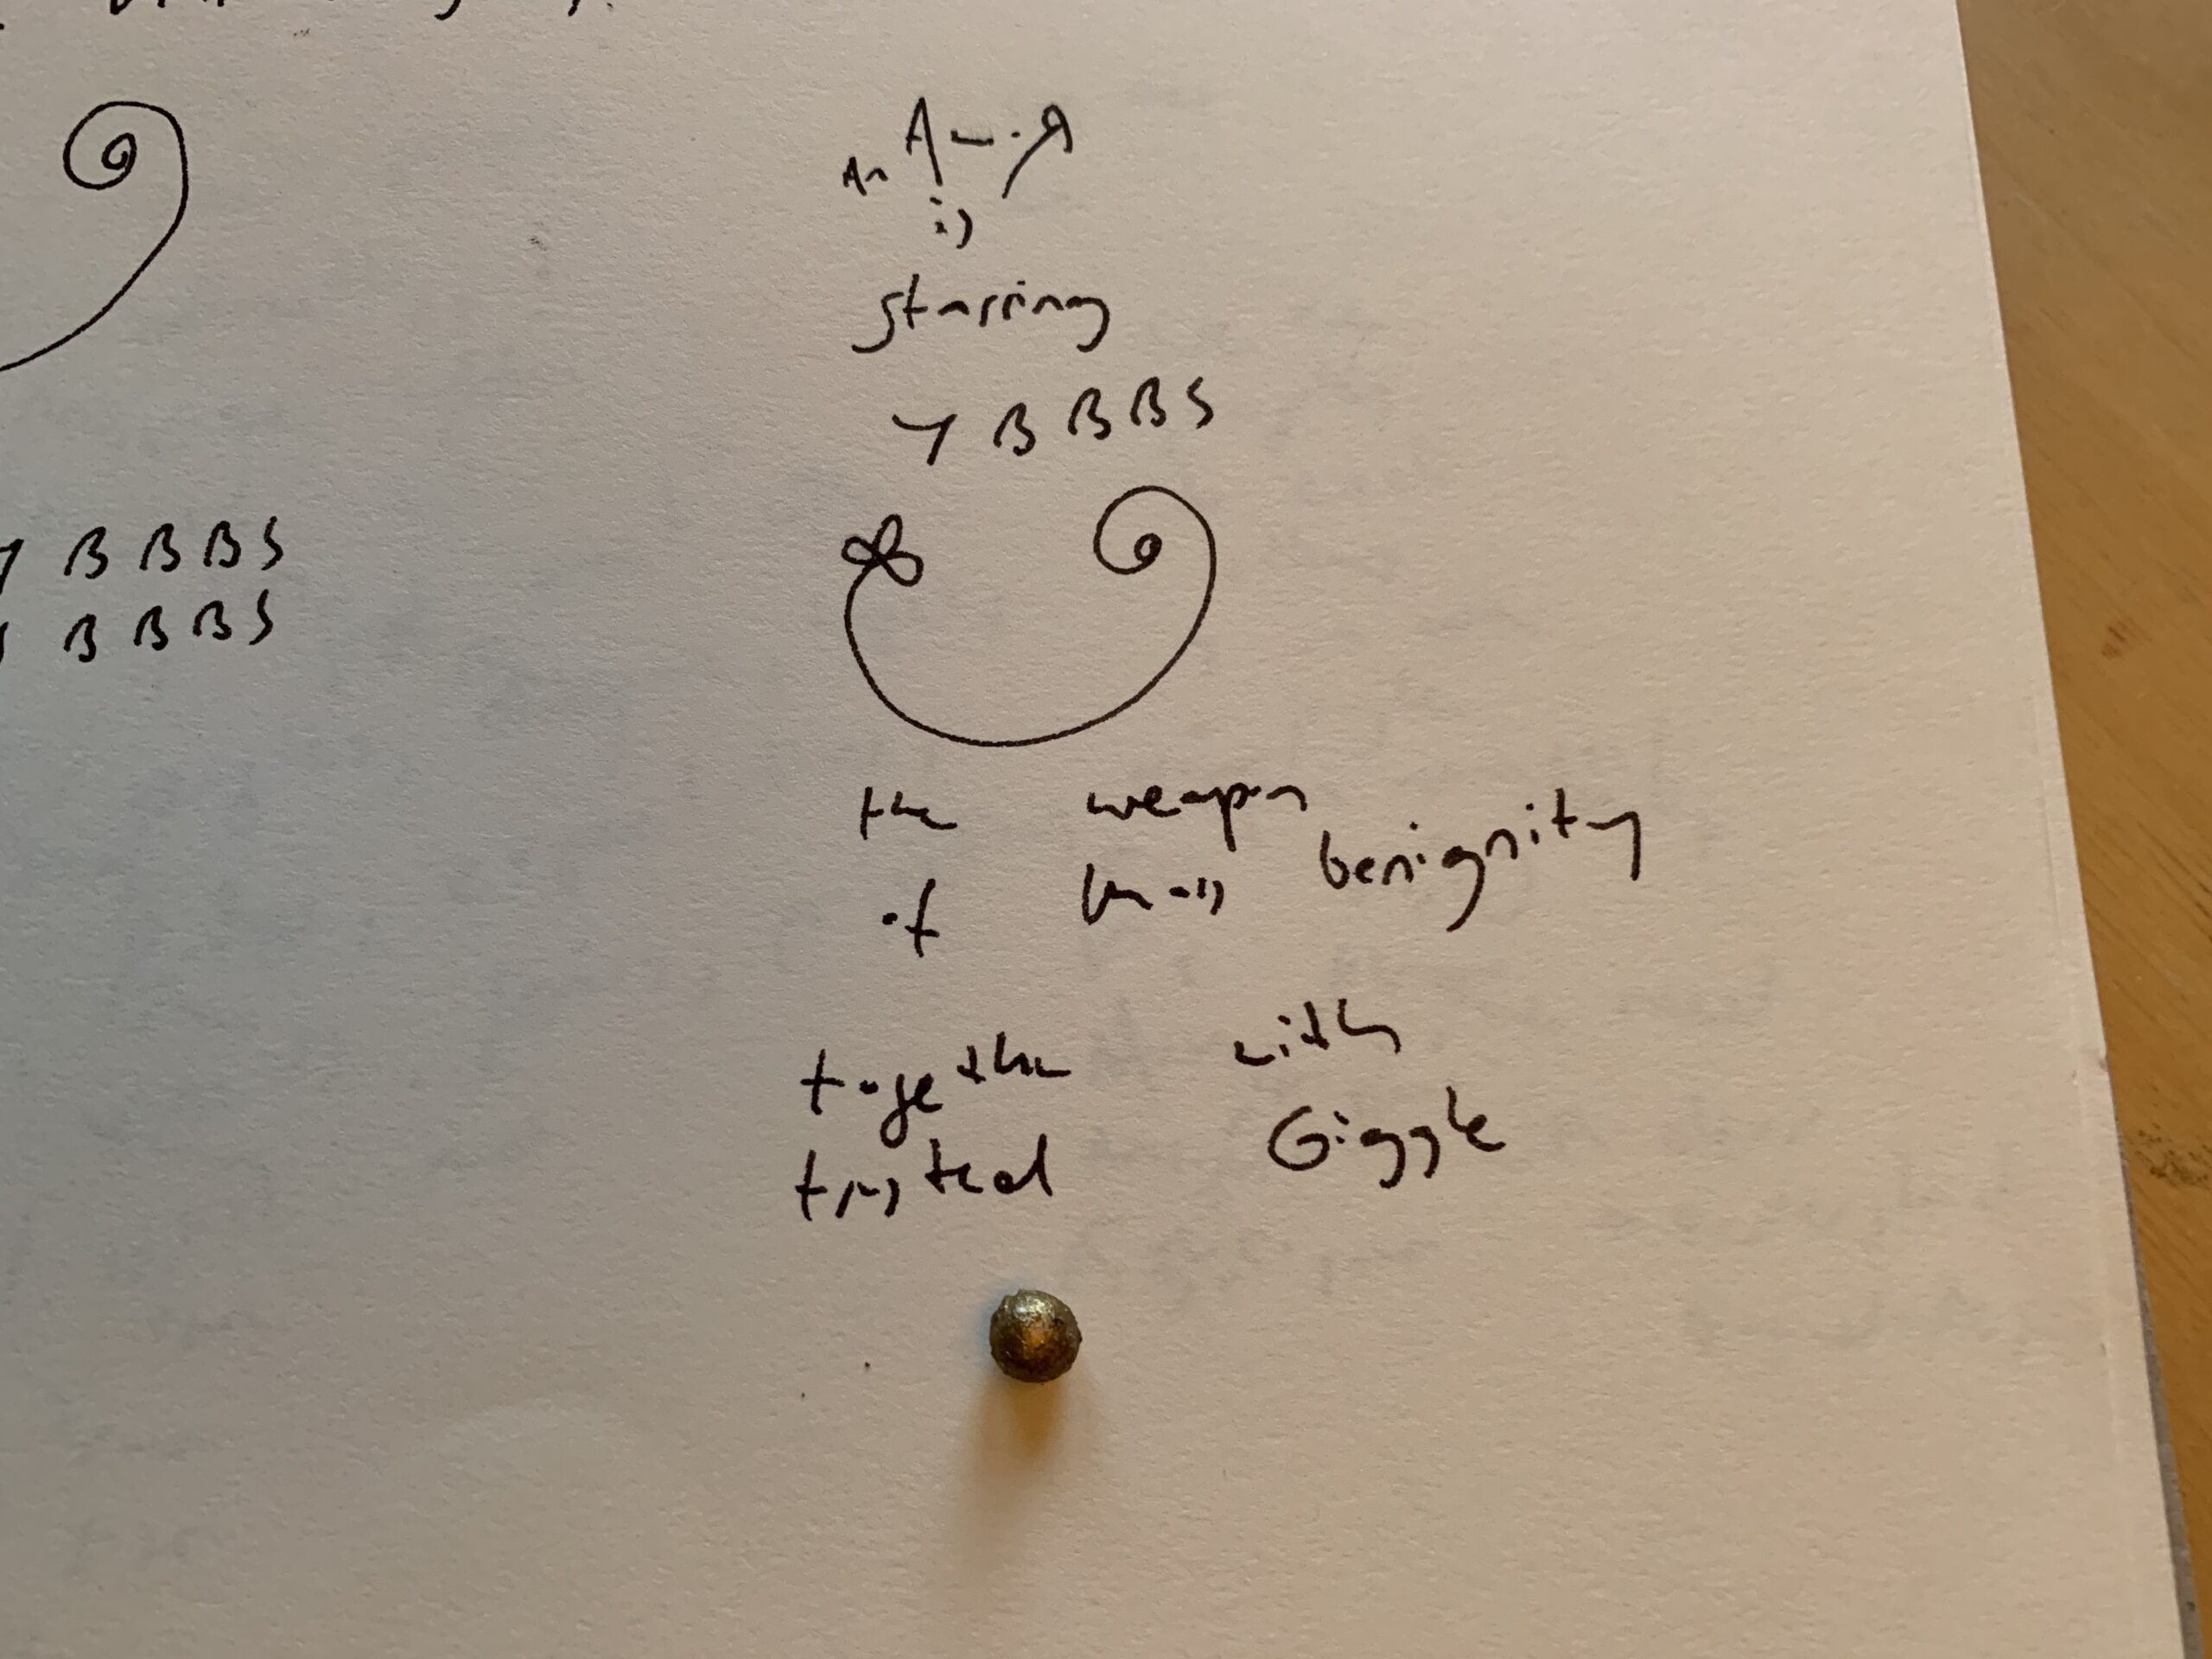 An A–.Я
is
starring
Y B B B S
Y B B B S
B B B S
the weapon
of mass benignity
together with
trusted Giggle